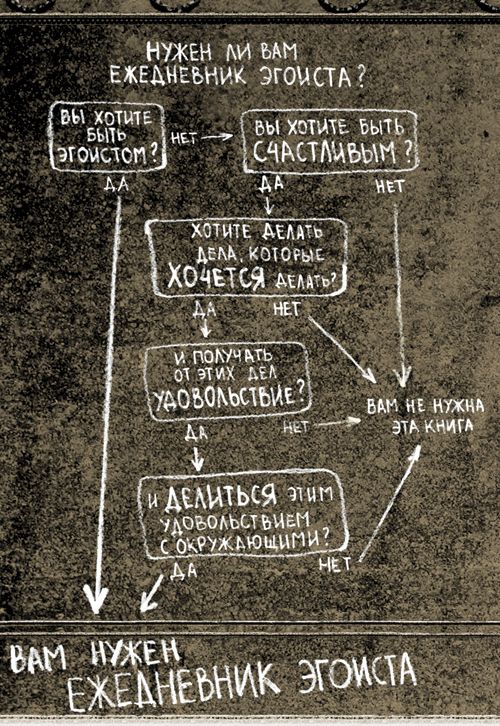 НУЖЕН ЛИ ВАМ
ЕЖЕДНЕВНИК ЭГОИСТА?
ВЫ ХОТИТЕ
БЫТЬ
ЭГОИСТОМ?
НЕТ
ВЫ ХОТИТЕ БЫТЬ
СЧАСТЛИВЫМ?
ДА
ДА
НЕТ
ХОТИТЕ ДЕЛАТЬ
ДЕЛА, КОТОРЫЕ
ХОЧЕТСЯ ДЕЛАТЬ?
ДА
НЕТ
И ПОЛУЧАТЬ
ОТ ЭТИХ ДЕЛ
УДОВОЛЬСТВИЕ?
ДА
НЕТ
ВАМ НЕ НУЖНА
ЭТА КНИГА
И ДЕЛИТЬСЯ ЭТИМ
УДОВОЛЬСТВИЕМ
С ОКРУЖАЮЩИМИ?
ДА
НЕТ
ВАМ НУЖЕН
ЕЖЕДНЕВНИК ЭГОИСТА